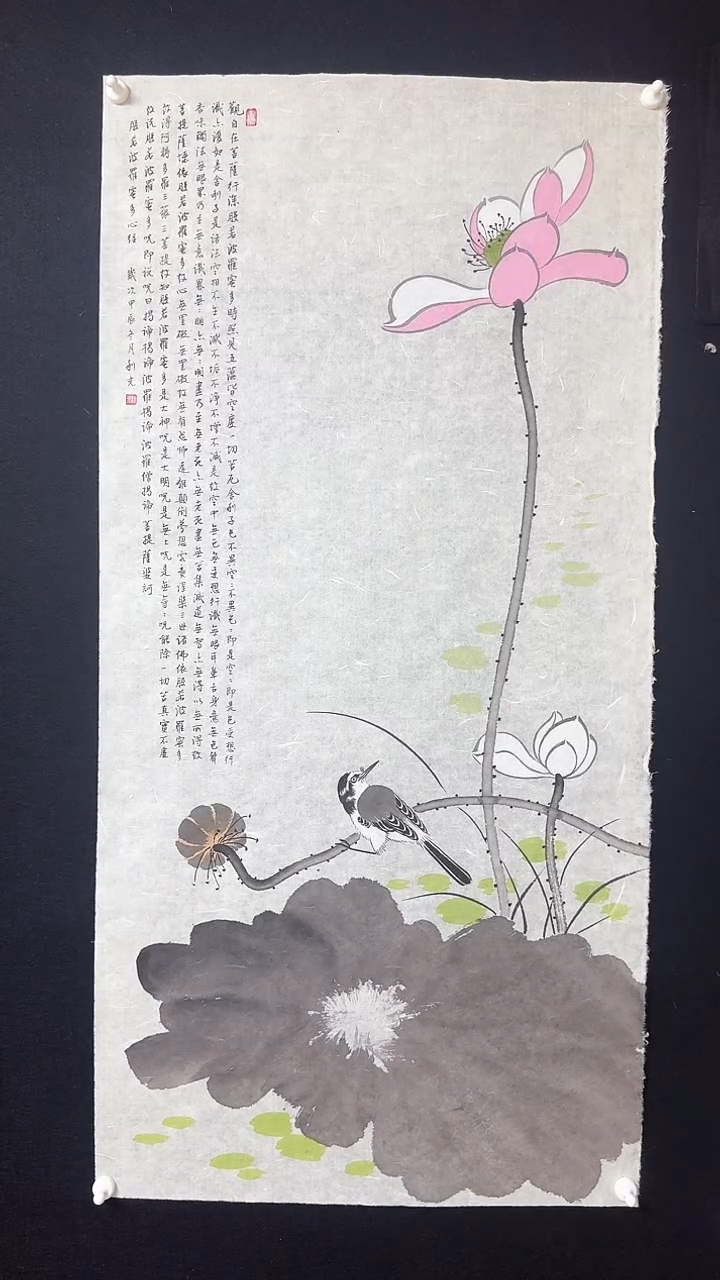 觀自在菩薩行深般若波羅蜜多時照見五蘊皆空度一切苦厄舍利子色不異空:不異色:即是空:即是色受想行
識亦復如是舍利子是諸法空相不生不滅不垢不淨不增不減是故空中無色無受想行識無眼耳鼻舌身意無色聲
香味觸法無眼界乃至無意識界無:明亦無:明盡乃至無老死亦無老死盡無苦集滅道無智亦無得以無所得故
菩提薩埵依般若波羅蜜多故心無罣礙無罣礙故無有恐怖遠離顛倒夢想究竟涅槃三世諸佛依般若波羅蜜多
故得阿耨多羅三藐三菩提故知般若波羅蜜多是大神呪是大明呪是無上呪是無等:呪能除一切苦真實不虛
故說般若波羅蜜多呪即說呪曰揭諦揭諦波羅揭諦波羅僧揭諦菩提薩婆訶
般若波羅蜜多心經 歲次甲辰午月利光